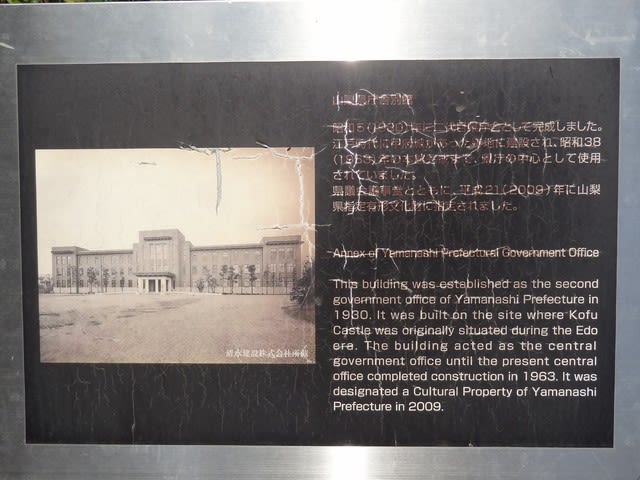 山梨県庁舎別館
昭和5(1930)年に二代目県庁として完成しました。
江戸時代には甲府城があった跡地に建設され、昭和38
(1963)年に現在の本庁舎が完成するまで、県庁の中心として使用
されていました。
県議会議事堂とともに、平成21(2009)年に山梨
県指定有形文化財に指定されました。
Annex of Yamanashi Prefectural Government Office
This building was established as the second
government office of Yamanashi Prefecture in
1930. It was built on the site where Kofu
Castle was originally situated during the Edo
era. The building acted as the central
government office until the present central
office completed construction in 1963. It was
designated a Cultural Property of Yamanashi
Prefecture in 2009.
清水建設株式会社所蔵